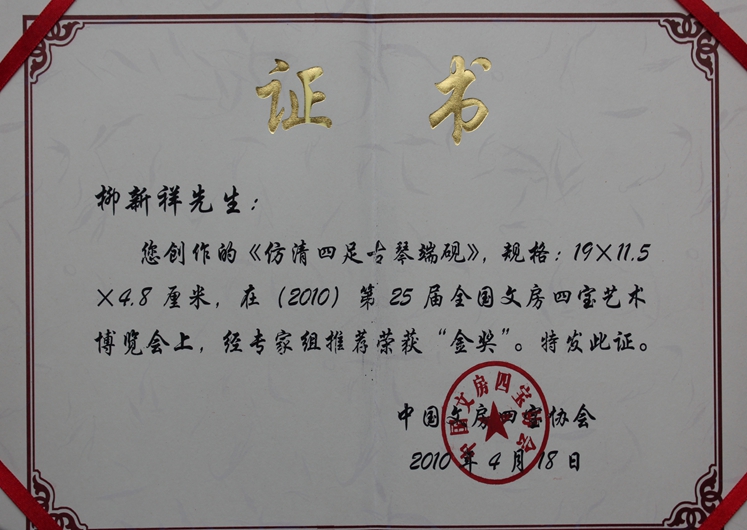 证 书
柳新祥先生：
您创作的《仿清四足古琴端砚》，规格：19×11.5
×4.8 厘米，在（2010）第 25 届全国文房四宝艺术
博览会上，经专家组推荐荣获“金奖”。特发此证。
中国文房四宝协会
2010 年 4 月 18 日
中国文房四宝协会